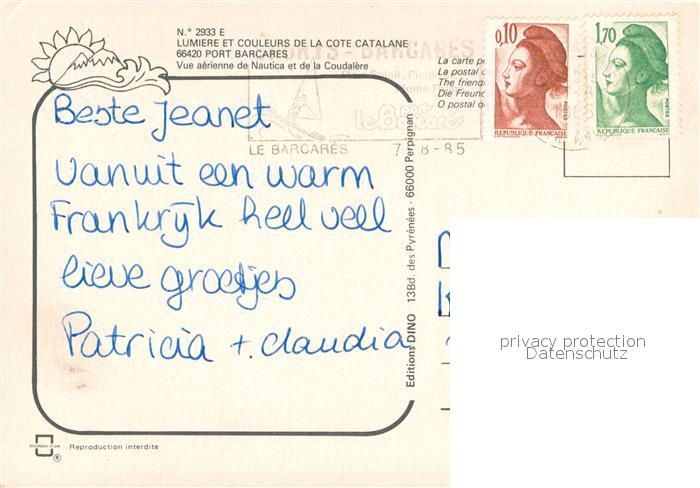 N.° 2933 E
LUMIERE ET COULEURS DE LA COTE CATALANE
66420 PORT BARCARES
Vue aérienne de Nautica et de la Coudalère
La carte p
La postal
The friend
Die Freun
O postal
0,10
POSTES
REPUBLIQUE FRANÇAISE
1,70
POSTES
REPUBLIQUE FRANÇAISE
PORTS - BARCARES
LE BARCARÈS 7-8-85
Beste Jeanet
vanuit een warm
Frankrijk heel veel
lieve groetjes
Patricia + claudia
Editions DINO 13Bd. des Pyrénées - 66000 Perpignan
privacy protection
Datenschutz
Reproduction interdite
®